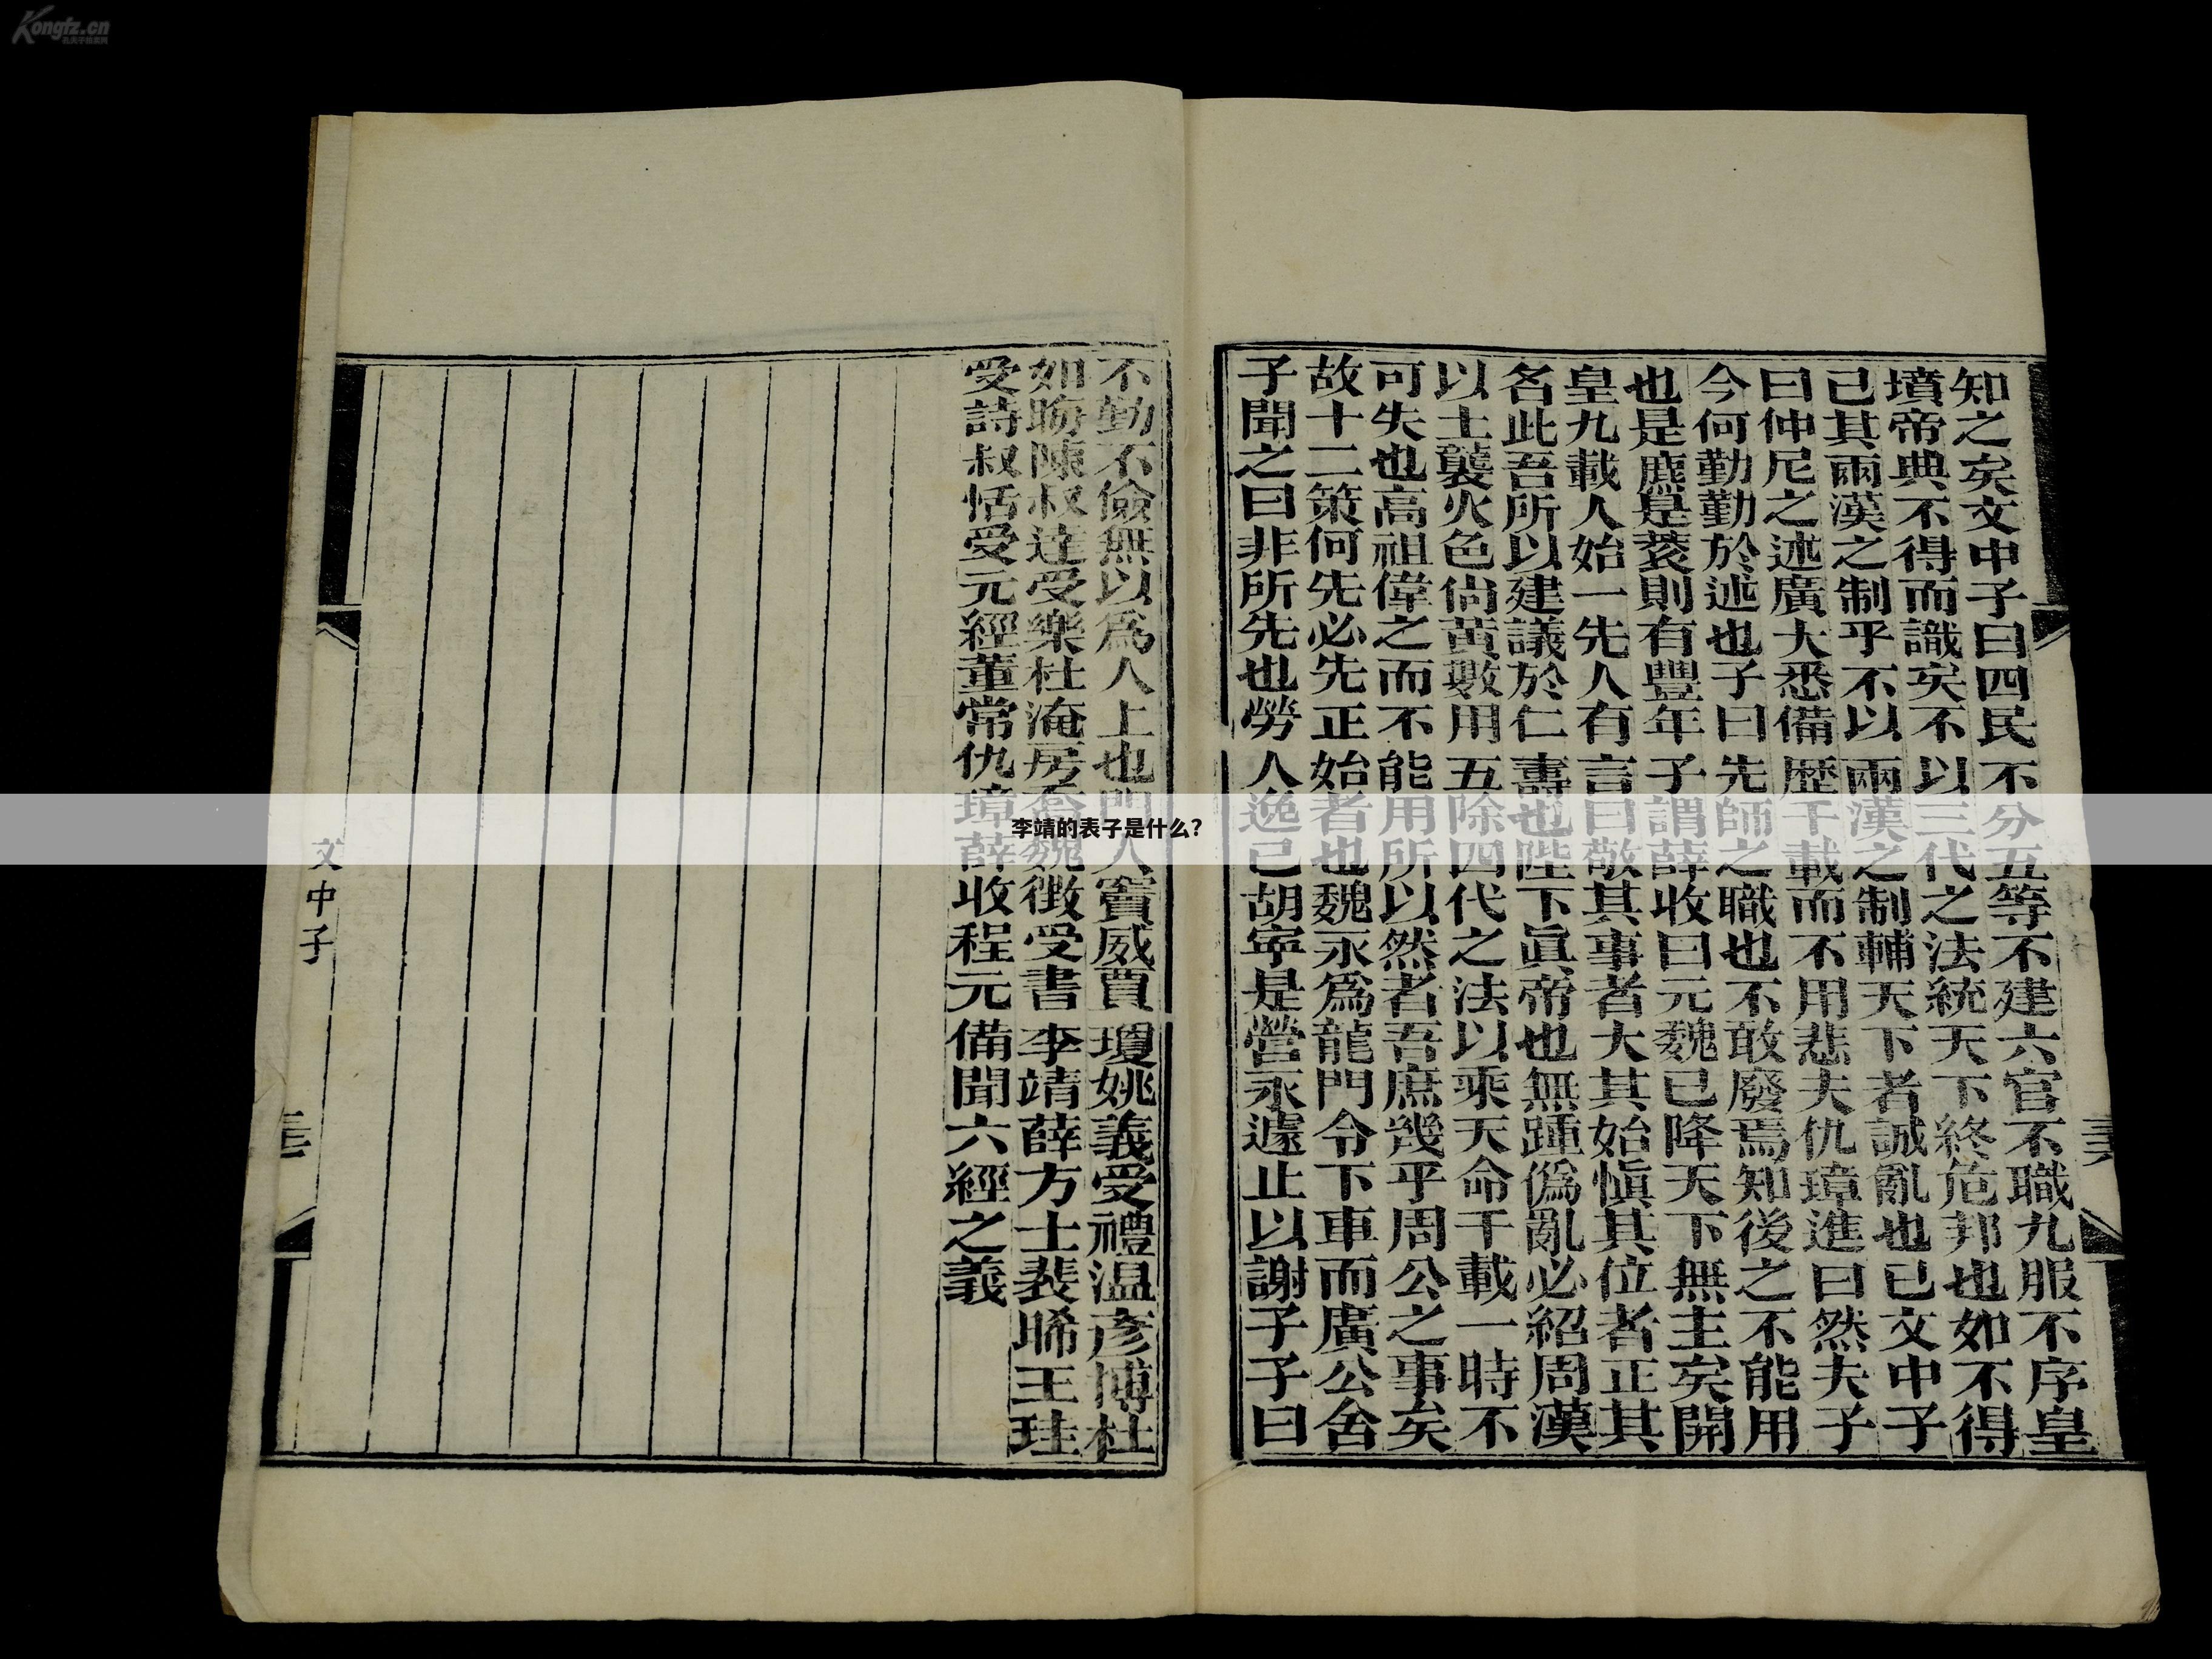 Kongfz.cn
知之矣文中子曰四民不分五等不建六官不職九服不序皇
墳帝典不得而識矣不以三代之法統天下終危邦也如不得
已其兩漢之制乎不以兩漢之制輔天下者誠亂也已文中子
曰仲尼之述廣大悉備歴千載而不用悲夫仇璋進曰然夫子
今何勤勤於述也子曰先師之職也不敢廢焉知後之不能用
也是藨是蔉則有豐年子謂薛收曰元魏已降天下無主矣開
皇九載人始一先人有言曰敬其事者大其始慎其位者正其
名此吾所以建議於仁壽也陛下眞帝也無踵僞亂必紹周漢
以土襲火色尚黃數用五除四代之法以乘天命千載一時不
可失也高祖偉之而不能用所以然者吾庶幾乎周公之事矣
故十二策何先必先正始者也魏永爲龍門令下車而廣公舍
子聞之曰非所先也勞人逸己胡寧是營永遽止以謝子子曰
不勤不儉無以爲人上也門人竇威賈瓊姚義受禮温彥博杜
如晦陳叔達受樂杜淹房喬魏徵受書李靖薛方士裴晞王珪
受詩叔恬受元經董常仇璋薛收程元備聞六經之義
文中子
李靖的表子是什么?